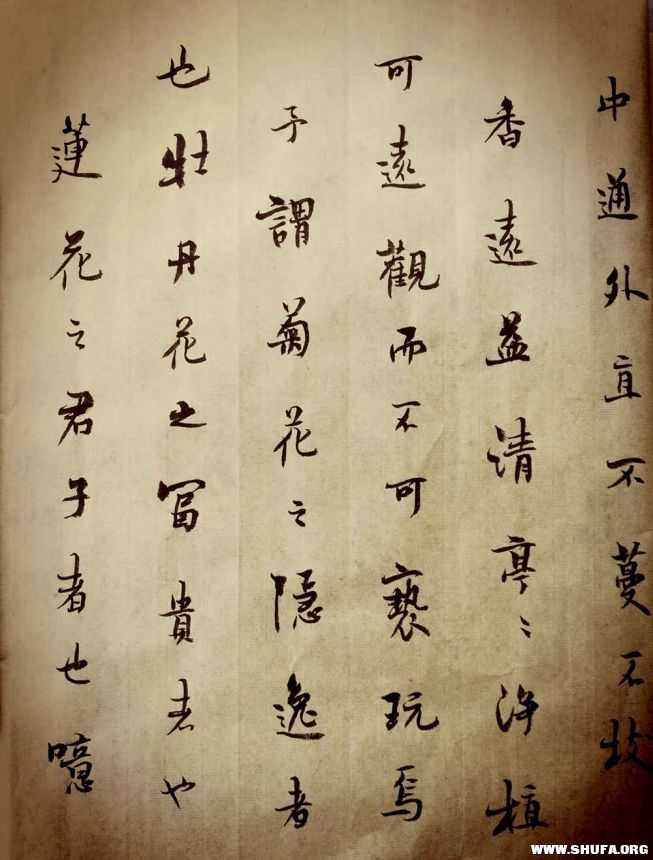 中通外直不蔓不枝
香遠益清亭〻淨植
可遠觀而不可褻玩焉
予謂菊花之隱逸者
也牡丹花之富貴者也
蓮花之君子者也噫
WWW.SHUFA.ORG